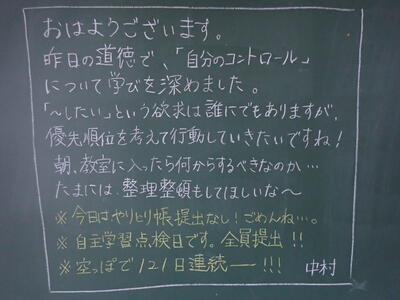 おはようございます。
昨日の道徳で、「自分のコントロール」
について学びを深めました。
「〜したい」という欲求は誰にでもありますが、
優先順位を考えて行動していきたいですね！
朝、教室に入ったら何からするべきなのか…
たまには、整理整頓もしてほしいな〜
※今日はやりとり帳提出なし！ごめんね…。
※自主学習点検日です。全員提出！！
※空っぽで121日連続ー!!!
中村